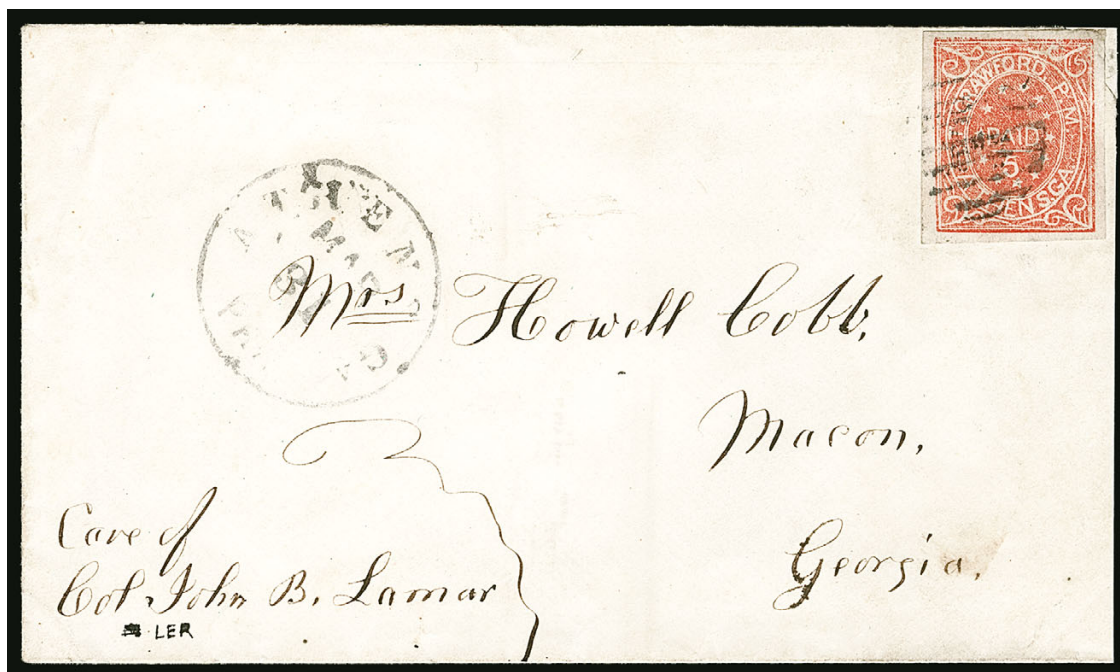 CRAWFORD. P. M.
PAID
5
ENS.GA.
ATHENS
MAR
GA
Mrs Howell Cobb,
Macon,
Georgia.
Care of
Col. John B. Lamar
LER